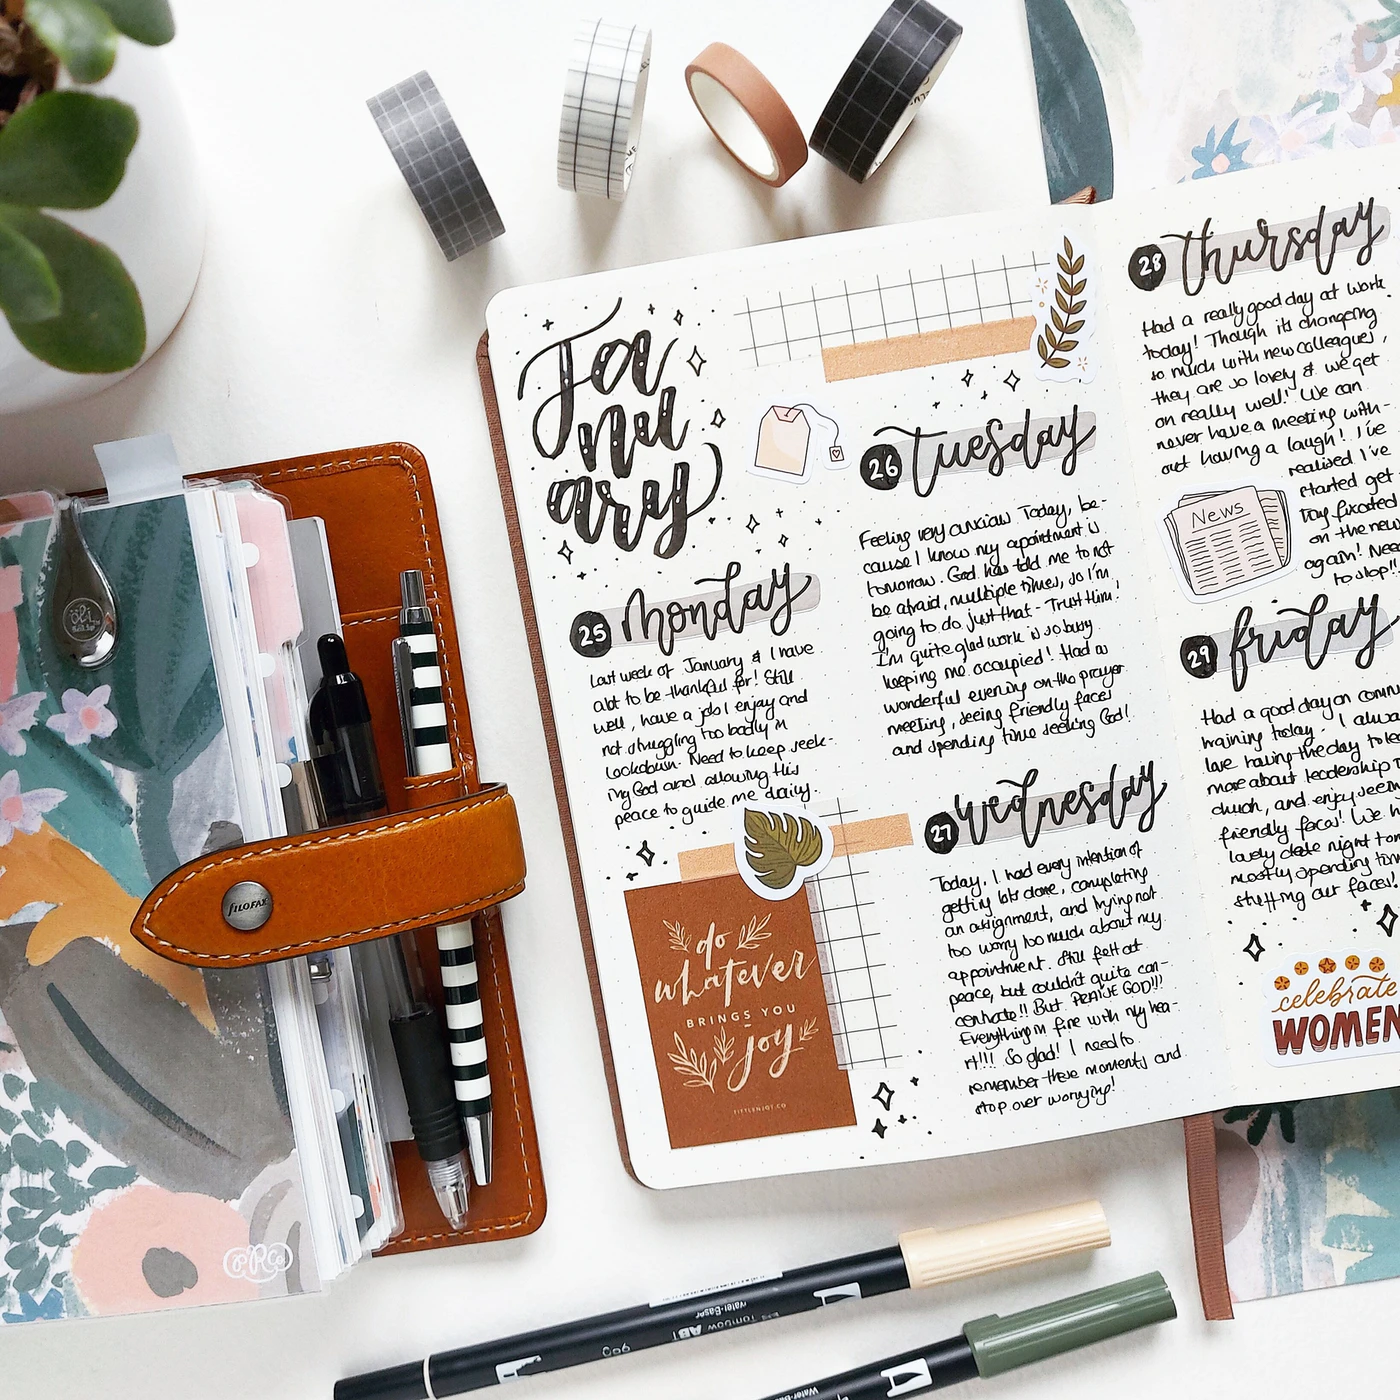 Ja
nu
ary
25 monday
Last week of January & I have
a lot to be thankful for! Still
well, have a job I enjoy and
not struggling too badly in
lockdown. Need to keep seek-
ing God and allowing His
peace to guide me daily.
do
whatever
BRINGS YOU
joy
26 tuesday
Feeling very anxious today, be-
cause I know my appointment is
tomorrow. God has told me to not
be afraid, multiple times, so I'm
going to do just that - Trust Him!
I'm quite glad work is so busy
keeping me occupied! Had a
wonderful evening on the prayer
meeting, seeing friendly faces
and spending time seeking God!
27 wednesday
Today, I had every intention of
getting lots done, completing
an assignment, and trying not
too worry too much about my
appointment. Still felt at
peace, but couldn't quite con-
centrate!! But PRAISE GOD!!!
Everything is fine with my hea-
rt!!! So glad! I need to
remember these moments and
stop over worrying!
28 thursday
Had a really good day at work
today! Though its changing
so much with new colleagues,
they are so lovely & we get
on really well! We can
never have a meeting with-
out having a laugh! I've
realised I've
started get
fixated
on the new
again! Need
to stop!!
News
29 friday
Had a good day on
training today. I alwa
love having the day to
more about leadership
church, and enjoy seein
friendly faces! We h
lovely date night
mostly spending tim
stuffing our faces!
celebrate
WOMEN
filofax
Tombow ABT
990